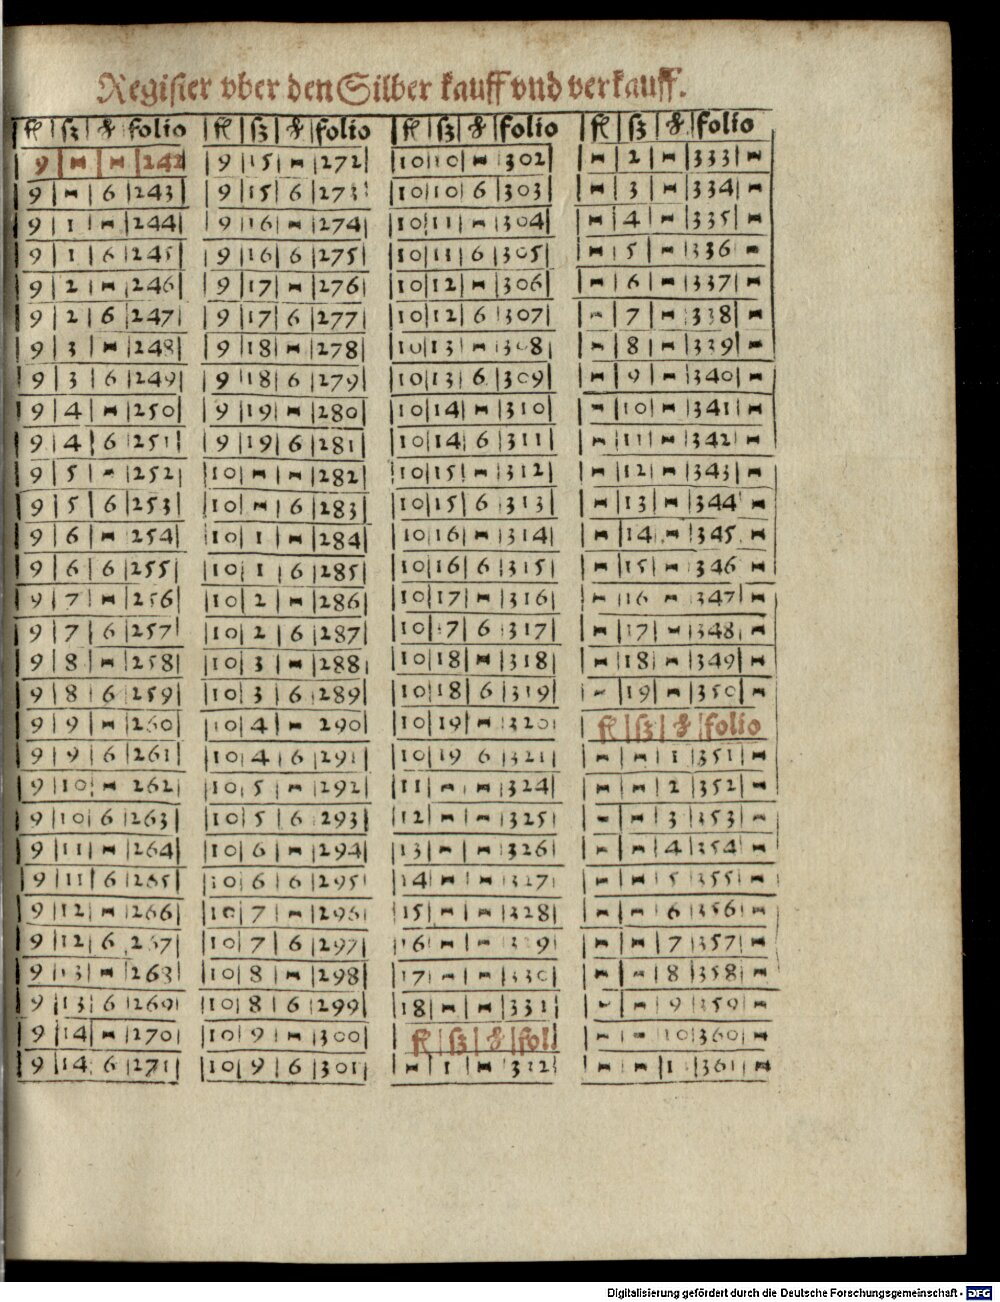 Register vber den Silber kauff vnd verkauff.
fl ß ₰ folio fl ß ₰ folio fl ß ₰ folio fl ß ₰ folio
9 | - | - | 242 | 9 | 15 | - | 272 | 10 | 10 | - | 302 | - | 2 | - | 333 | -
9 | - | 6 | 243 | 9 | 15 | 6 | 273 | 10 | 10 | 6 | 303 | - | 3 | - | 334 | -
9 | 1 | - | 244 | 9 | 16 | - | 274 | 10 | 11 | - | 304 | - | 4 | - | 335 | -
9 | 1 | 6 | 245 | 9 | 16 | 6 | 275 | 10 | 11 | 6 | 305 | - | 5 | - | 336 | -
9 | 2 | - | 246 | 9 | 17 | - | 276 | 10 | 12 | - | 306 | - | 6 | - | 337 | -
9 | 2 | 6 | 247 | 9 | 17 | 6 | 277 | 10 | 12 | 6 | 307 | - | 7 | - | 338 | -
9 | 3 | - | 248 | 9 | 18 | - | 278 | 10 | 13 | - | 308 | - | 8 | - | 339 | -
9 | 3 | 6 | 249 | 9 | 18 | 6 | 279 | 10 | 13 | 6 | 309 | - | 9 | - | 340 | -
9 | 4 | - | 250 | 9 | 19 | - | 280 | 10 | 14 | - | 310 | - | 10 | - | 341 | -
9 | 4 | 6 | 251 | 9 | 19 | 6 | 281 | 10 | 14 | 6 | 311 | - | 11 | - | 342 | -
9 | 5 | - | 252 | 10 | - | - | 282 | 10 | 15 | - | 312 | - | 12 | - | 343 | -
9 | 5 | 6 | 253 | 10 | - | 6 | 283 | 10 | 15 | 6 | 313 | - | 13 | - | 344 | -
9 | 6 | - | 254 | 10 | 1 | - | 284 | 10 | 16 | - | 314 | - | 14 | - | 345 | -
9 | 6 | 6 | 255 | 10 | 1 | 6 | 285 | 10 | 16 | 6 | 315 | - | 15 | - | 346 | -
9 | 7 | - | 256 | 10 | 2 | - | 286 | 10 | 17 | - | 316 | - | 16 | - | 347 | -
9 | 7 | 6 | 257 | 10 | 2 | 6 | 287 | 10 | 17 | 6 | 317 | - | 17 | - | 348 | -
9 | 8 | - | 258 | 10 | 3 | - | 288 | 10 | 18 | - | 318 | - | 18 | - | 349 | -
9 | 8 | 6 | 259 | 10 | 3 | 6 | 289 | 10 | 18 | 6 | 319 | - | 19 | - | 350 | -
9 | 9 | - | 260 | 10 | 4 | - | 290 | 10 | 19 | - | 320 | fl | ß | ₰ | folio
9 | 9 | 6 | 261 | 10 | 4 | 6 | 291 | 10 | 19 | 6 | 321 | - | - | 1 | 351 | -
9 | 10 | - | 262 | 10 | 5 | - | 292 | 11 | - | - | 324 | - | - | 2 | 352 | -
9 | 10 | 6 | 263 | 10 | 5 | 6 | 293 | 12 | - | - | 325 | - | - | 3 | 353 | -
9 | 11 | - | 264 | 10 | 6 | - | 294 | 13 | - | - | 326 | - | - | 4 | 354 | -
9 | 11 | 6 | 265 | 10 | 6 | 6 | 295 | 14 | - | - | 327 | - | - | 5 | 355 | -
9 | 12 | - | 266 | 10 | 7 | - | 296 | 15 | - | - | 328 | - | - | 6 | 356 | -
9 | 12 | 6 | 267 | 10 | 7 | 6 | 297 | 16 | - | - | 329 | - | - | 7 | 357 | -
9 | 13 | - | 268 | 10 | 8 | - | 298 | 17 | - | - | 330 | - | - | 8 | 358 | -
9 | 13 | 6 | 269 | 10 | 8 | 6 | 299 | 18 | - | - | 331 | - | - | 9 | 359 | -
9 | 14 | - | 270 | 10 | 9 | - | 300 | fl | ß | ₰ | fol. | - | - | 10 | 360 | -
9 | 14 | 6 | 271 | 10 | 9 | 6 | 301 | - | 1 | - | 332 | - | - | | 361 | -
Digitalisierung gefördert durch die Deutsche Forschungsgemeinschaft - DFG